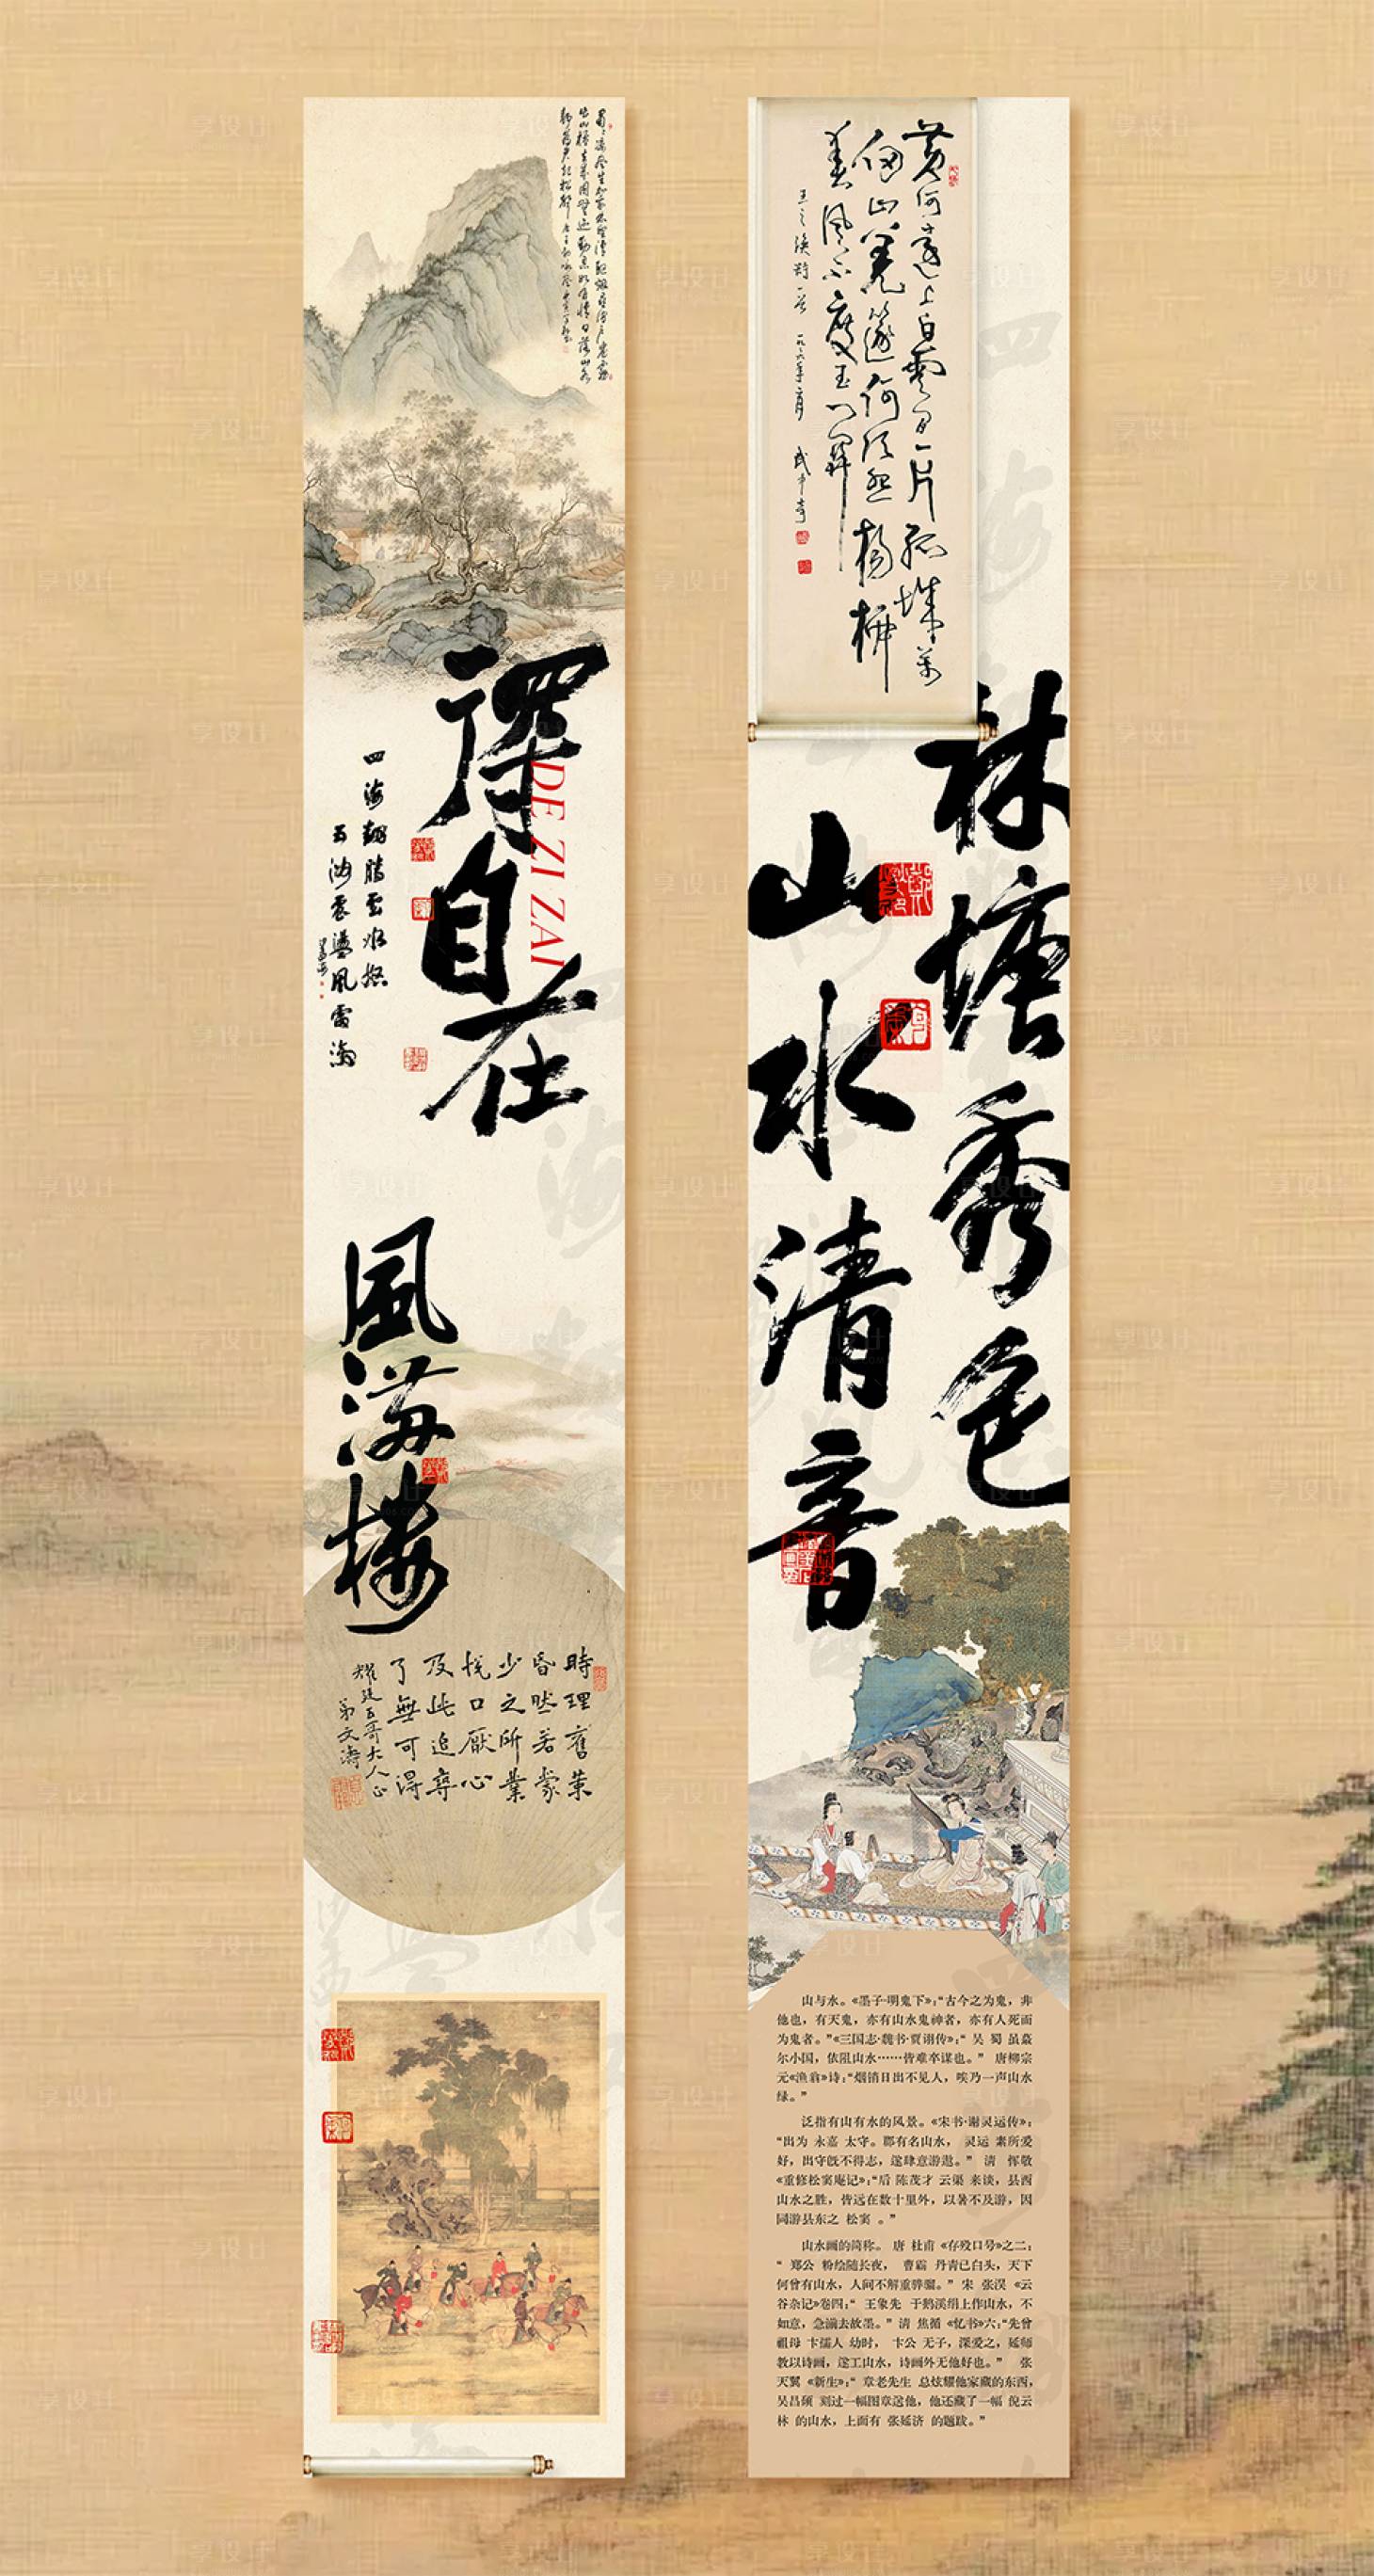 肅肅涼風生加我林壑清驅烟尋澗户卷霧
出山楹去來固無迹動息如有情日落山水
得自在
DE ZI ZAI
四海翻騰雲水怒
五洲震盪風雷激
風満樓
時理舊業
昏然若蒙
少之所業
悅口厭心
及此追尋
了無可得
耀廷五哥大人正
弟文濤
黄河遠上白雲間一片孤城萬
仞山羌篴何須怨楊柳
春風不度玉門關
王之渙詩一首
武中奇
林塘秀色
山水清音
山与水。《墨子·明鬼下》:“古今之为鬼,非
他也,有天鬼,亦有山水鬼神者,亦有人死而
为鬼者。”《三国志·魏书·贾诩传》:“ 吴 蜀 虽蕞
尔小国,依阻山水……皆难卒谋也。” 唐柳宗
元《渔翁》诗:“烟销日出不见人,唉乃一声山水
绿。”
泛指有山有水的风景。《宋书·谢灵运传》:
“出为 永嘉 太守。郡有名山水, 灵运 素所爱
好,出守既不得志,遂肆意游遨。” 清 恽敬
《重修松窦庵记》:“后 陈茂才 云渠 来谈,县西
山水之胜,皆远在数十里外,以暑不及游,因
同游县东之 松窦 。”
山水画的简称。 唐 杜甫 《存殁口号》之二:
“ 郑公 粉绘随长夜, 曹霸 丹青已白头,天下
何曾有山水,人间不解重骅骝。” 宋 张淏 《云
谷杂记》卷四:“ 王象先 于鹅溪绢上作山水,不
如意,急湔去故墨。” 清 焦循 《忆书》六:“先曾
祖母 卞孺人 幼时, 卞公 无子,深爱之,延师
教以诗画,遂工山水,诗画外无他好也。” 张
天翼 《新生》:“ 章老先生 总炫耀他家藏的东西,
吴昌硕 刻过一幅图章送他,他还藏了一幅 倪云
林 的山水,上面有 张廷济 的题跋。”